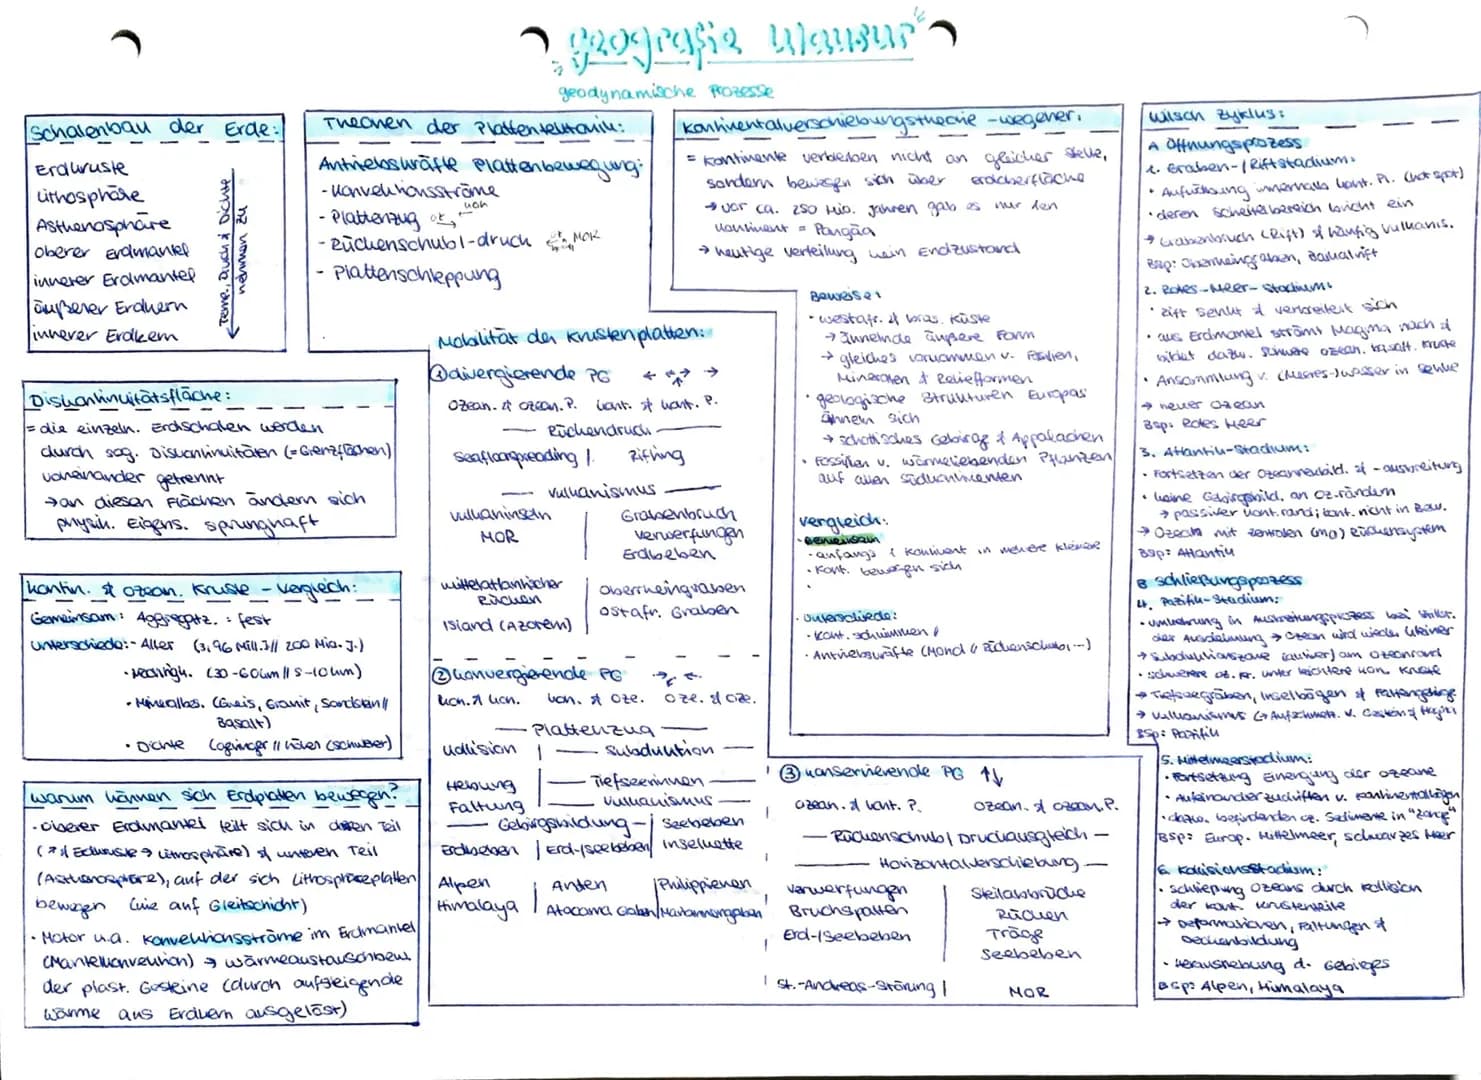 geografie Klausur
geodynamische Prozesse
Schalenbau der Erde:
Erdkruste
Lithosphäre
Asthenosphäre
oberer Erdmantel
innerer Erdmantel
äußerer Erdkern
innerer Erdkern
Temp., Druck & Dichte
nehmen zu
Diskontinuitätsfläche:
= die einzeln. Erdschalen werden
durch sog. Diskontinuitäten (= Grenzflächen)
voneinander getrennt
→ an diesen Flächen ändern sich
physik. Eigens. sprunghaft
kontin. & ozean. Kruste - Vergleich:
Gemeinsam: Aggregatz. : fest
Unterschiede: - Alter (3,96 Mill.J // 200 Mio. J.)
• Mächtigk. (30-60km // 5-10km)
• Mineralbes. (Gneis, Granit, Sandstein //
Basalt)
• Dichte (geringer // höher (schwer)
Warum können sich Erdplatten bewegen?
• oberer Erdmantel teilt sich in oberen Teil
(+ Erdkruste → Lithosphäre) & unteren Teil
(Asthenosphäre), auf der sich Lithosphäreplatten
bewegen (wie auf Gleitschicht)
• Motor u.a. Konvektionsströme im Erdmantel
(Mantelkonvektion) → wärmeaustauschbew.
der plast. Gesteine (durch aufsteigende
Wärme aus Erdkern ausgelöst)
Theorien der Plattentektonik:
Antriebskräfte Plattenbewegung:
- Konvektionsströme
- Plattenzug oz. kon
- Rückenschub/-druck MOR
- Plattenschleppung
Mobilität der Krustenplatten:
① divergierende PG ← → →
Ozean. & ozean. P. kont. & kont. P.
— Rückendruck —
Seafloorspreading / Rifting
— Vulkanismus —
Vulkaninseln | Grabenbruch
MOR Verwerfungen
Erdbeben
mittelatlantischer | Oberrheingraben
Rücken Ostafr. Graben
Island (Azoren)
② konvergierende PG → ←
kon. & kon. kon. & oze. oze. & oze.
— Plattenzug —
Kollision | — Subduktion —
Hebung | — Tiefseerinnen —
Faltung | — Vulkanismus —
— Gebirgsbildung — | Seebeben
Erdbeben | Erd-/Seebeben | Inselkette
Alpen | Anden | Philippienen
Himalaya | Atacama Graben | Mariannengraben
Kontinentalverschiebungstheorie - Wegener:
= Kontinente verbleiben nicht an gleicher Stelle,
sondern bewegen sich über Erdoberfläche
→ vor ca. 250 Mio. Jahren gab es nur den
Kontinent = Pangäa
→ heutige Verteilung kein Endzustand
Beweise:
• westafr. & bras. Küste
→ ähnelnde äußere Form
→ gleiches Vorkommen v. Fossilien,
Mineralen & Reliefformen
• geologische Strukturen Europas
ähneln sich
→ schottisches Gebirge & Appalachen
• Fossilien v. wärmeliebenden Pflanzen
auf allen Südkontinenten
Vergleich:
• Gemeinsam
• anfangs 1 Kontinent in mehrere kleinere
• Kont. bewegen sich
•
• Unterschiede:
• Kont. schwimmen
• Antriebskräfte (Mond // Rückenschub, ...)
③ konservierende PG ↑↓
ozean. & kont. P. ozean. & ozean. P.
— Rückenschub / Druckausgleich —
— Horizontalverschiebung —
Verwerfungen | Steilabbrüche
Bruchspalten Rücken
Erd-/Seebeben Tröge
Seebeben
St.-Andreas-Störung | MOR
Wilson Zyklus:
A Öffnungsprozess
1. Graben-/Riftstadium:
• Aufwölbung innerhalb kont. Pl. (hot spot)
• deren Scheitelbereich bricht ein
→ Grabenbruch (Rift) & häufig Vulkanis.
Bsp: Oberrheingraben, Baikalrift
2. Rotes-Meer-Stadium:
• Rift senkt & verbreitert sich
• aus Erdmantel strömt Magma nach &
bildet dazw. schwere ozean. basalt. Kruste
• Ansammlung v. (Meeres-)wasser in Senke
→ neuer Ozean
Bsp: Rotes Meer
3. Atlantik-Stadium:
• Fortsetzen der Ozeanneubild. & -ausbreitung
• keine Gebirgsbild. an Oz.rändern
→ passiver kont.rand; kont. nicht in Bew.
→ Ozean mit zentralen (mo) Rückensystem
Bsp: Atlantik
B Schließungsprozess
4. Pazifik-Stadium:
• Umkehrung in Ausbreitungsprozess bei Stillst.
der Ausdehnung → Ozean wird wieder kleiner
→ Subduktionszone (aktiver) am Ozeanrand
• schwerere oz. Kr. unter leichtere kon. Kruste
→ Tiefseegräben, Inselbögen & Faltengebirge
→ Vulkanismus (→ Aufschmelz. v. Gestein & Magma)
Bsp: Pazifik
5. Mittelmeerstadium:
• Fortsetzung Einengung der Ozeane
• Aufeinanderzudriften v. Kontinentalblöcken
• dazw. befindenden oz. Sedimente in "Zange"
Bsp: Europ. Mittelmeer, schwarzes Meer
6. Kollisionsstadium:
• Schließung Ozeans durch Kollision
der kont. Krustenteile
→ Deformationen, Faltungen &
Deckenbildung
• Heraushebung d. Gebirges
Bsp: Alpen, Himalaya